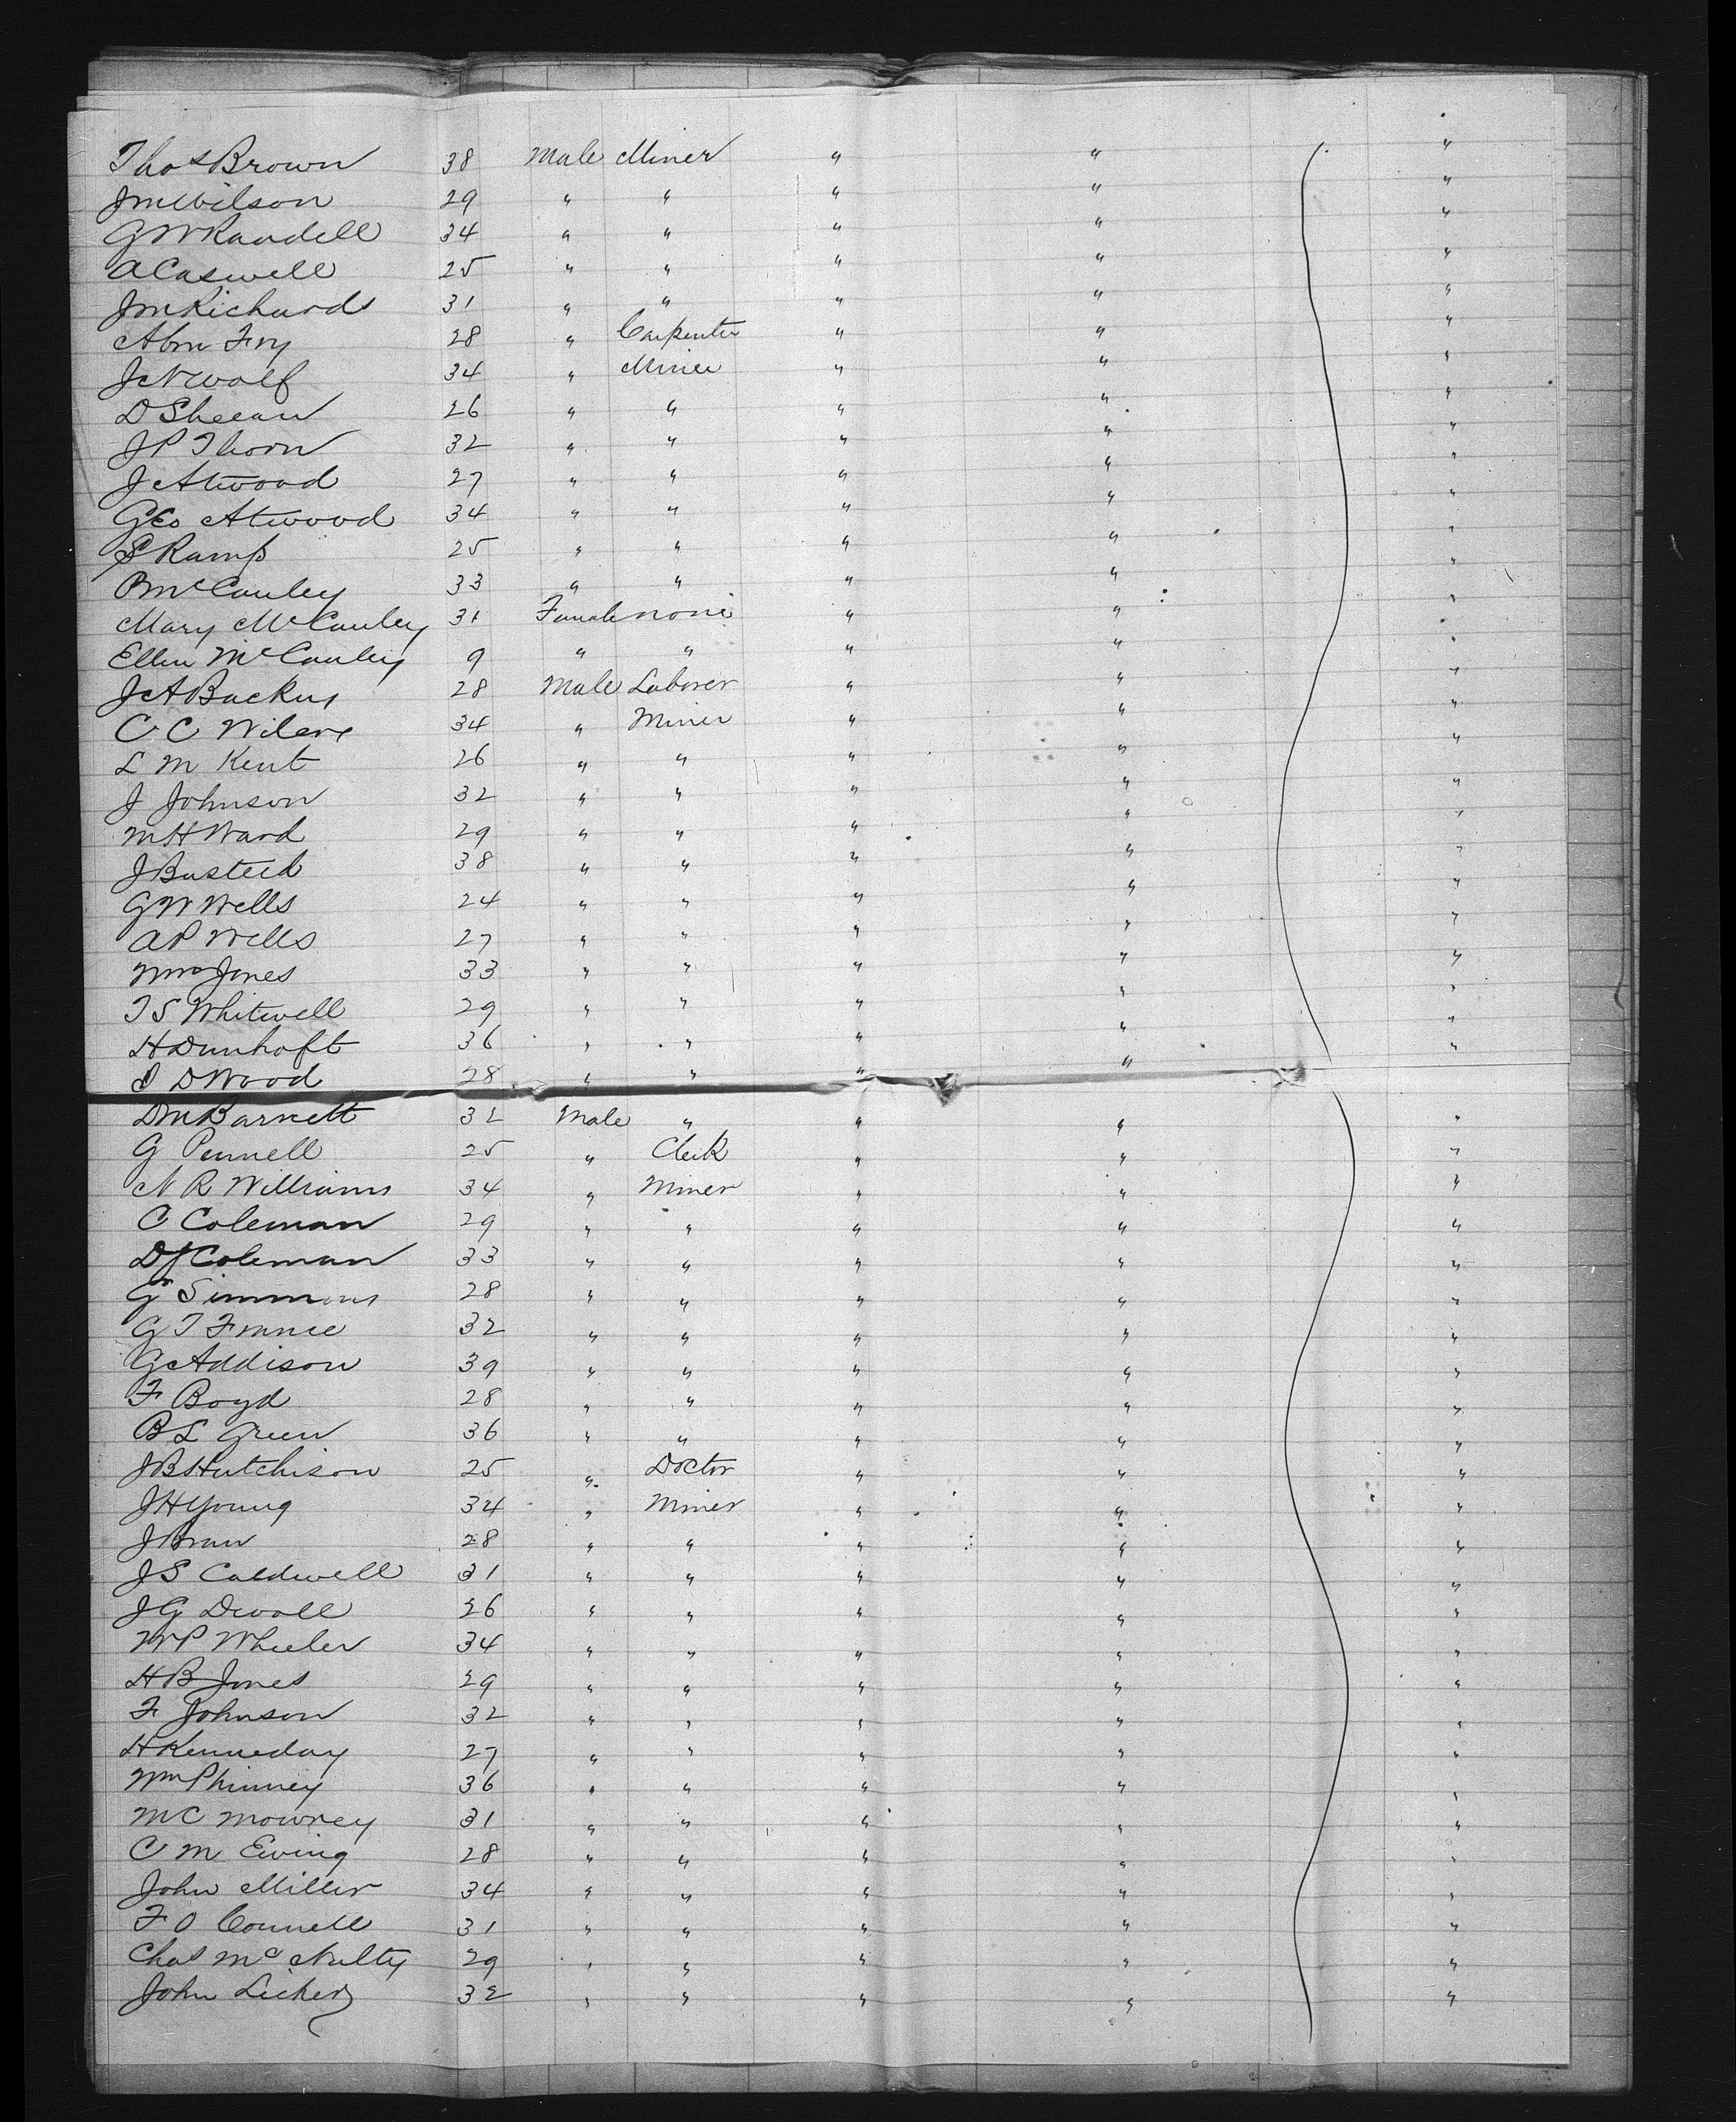 Thos Brown 38 Male Miner " " "
Jm Wilson 29 " " " " "
G W Randell 34 " " " " "
A Caswell 25 " " " " "
Jm Richards 31 " " " " "
Abm Fry 28 " Carpenter " " "
J N Wolf 34 " Miner " " "
D Sheean 26 " " " " "
J P Thorn 32 " " " " "
J Atwood 27 " " " " "
Geo Atwood 34 " " " " "
S Ramp 25 " " " " "
B McCauley 33 " " " " "
Mary McCauley 31 Female none " " "
Ellen McCauley 9 " " " " "
J A Backus 28 Male Laborer " " "
C C 34 " Miner " " "
L M Kent 26 " " " " "
J Johnson 32 " " " " "
M H Ward 29 " " " " "
J Busteed 38 " " " " "
G W Wells 24 " " " " "
A P Wells 27 " " " " "
Wm Jones 33 " " " " "
T S Whitwell 29 " " " " "
H Dunhoft 36 " " " " "
D Wood 28 " " " " "
D M Barnett 32 Male " " " "
G Pennell 25 " Clerk " " "
N R Williams 34 " Miner " " "
C Coleman 29 " " " " "
D J Coleman 33 " " " " "
G Simmons 28 " " " " "
G T France 32 " " " " "
G Addison 39 " " " " "
F Boyd 28 " " " " "
B L Green 36 " " " " "
J B Hutchison 25 " Doctor " " "
J H Young 34 " Miner " " "
J Bran 28 " " " " "
J S Caldwell 31 " " " " "
J G Devoll 26 " " " " "
W P Wheeler 34 " " " " "
H B Jones 29 " " " " "
F Johnson 32 " " " " "
H Kenneday 27 " " " " "
Wm Phinney 36 " " " " "
M C Mowrey 31 " " " " "
C M Ewing 28 " " " " "
John Miller 34 " " " " "
F O Connell 31 " " " " "
Chas McNulty 29 " " " " "
John 32 " " " " "